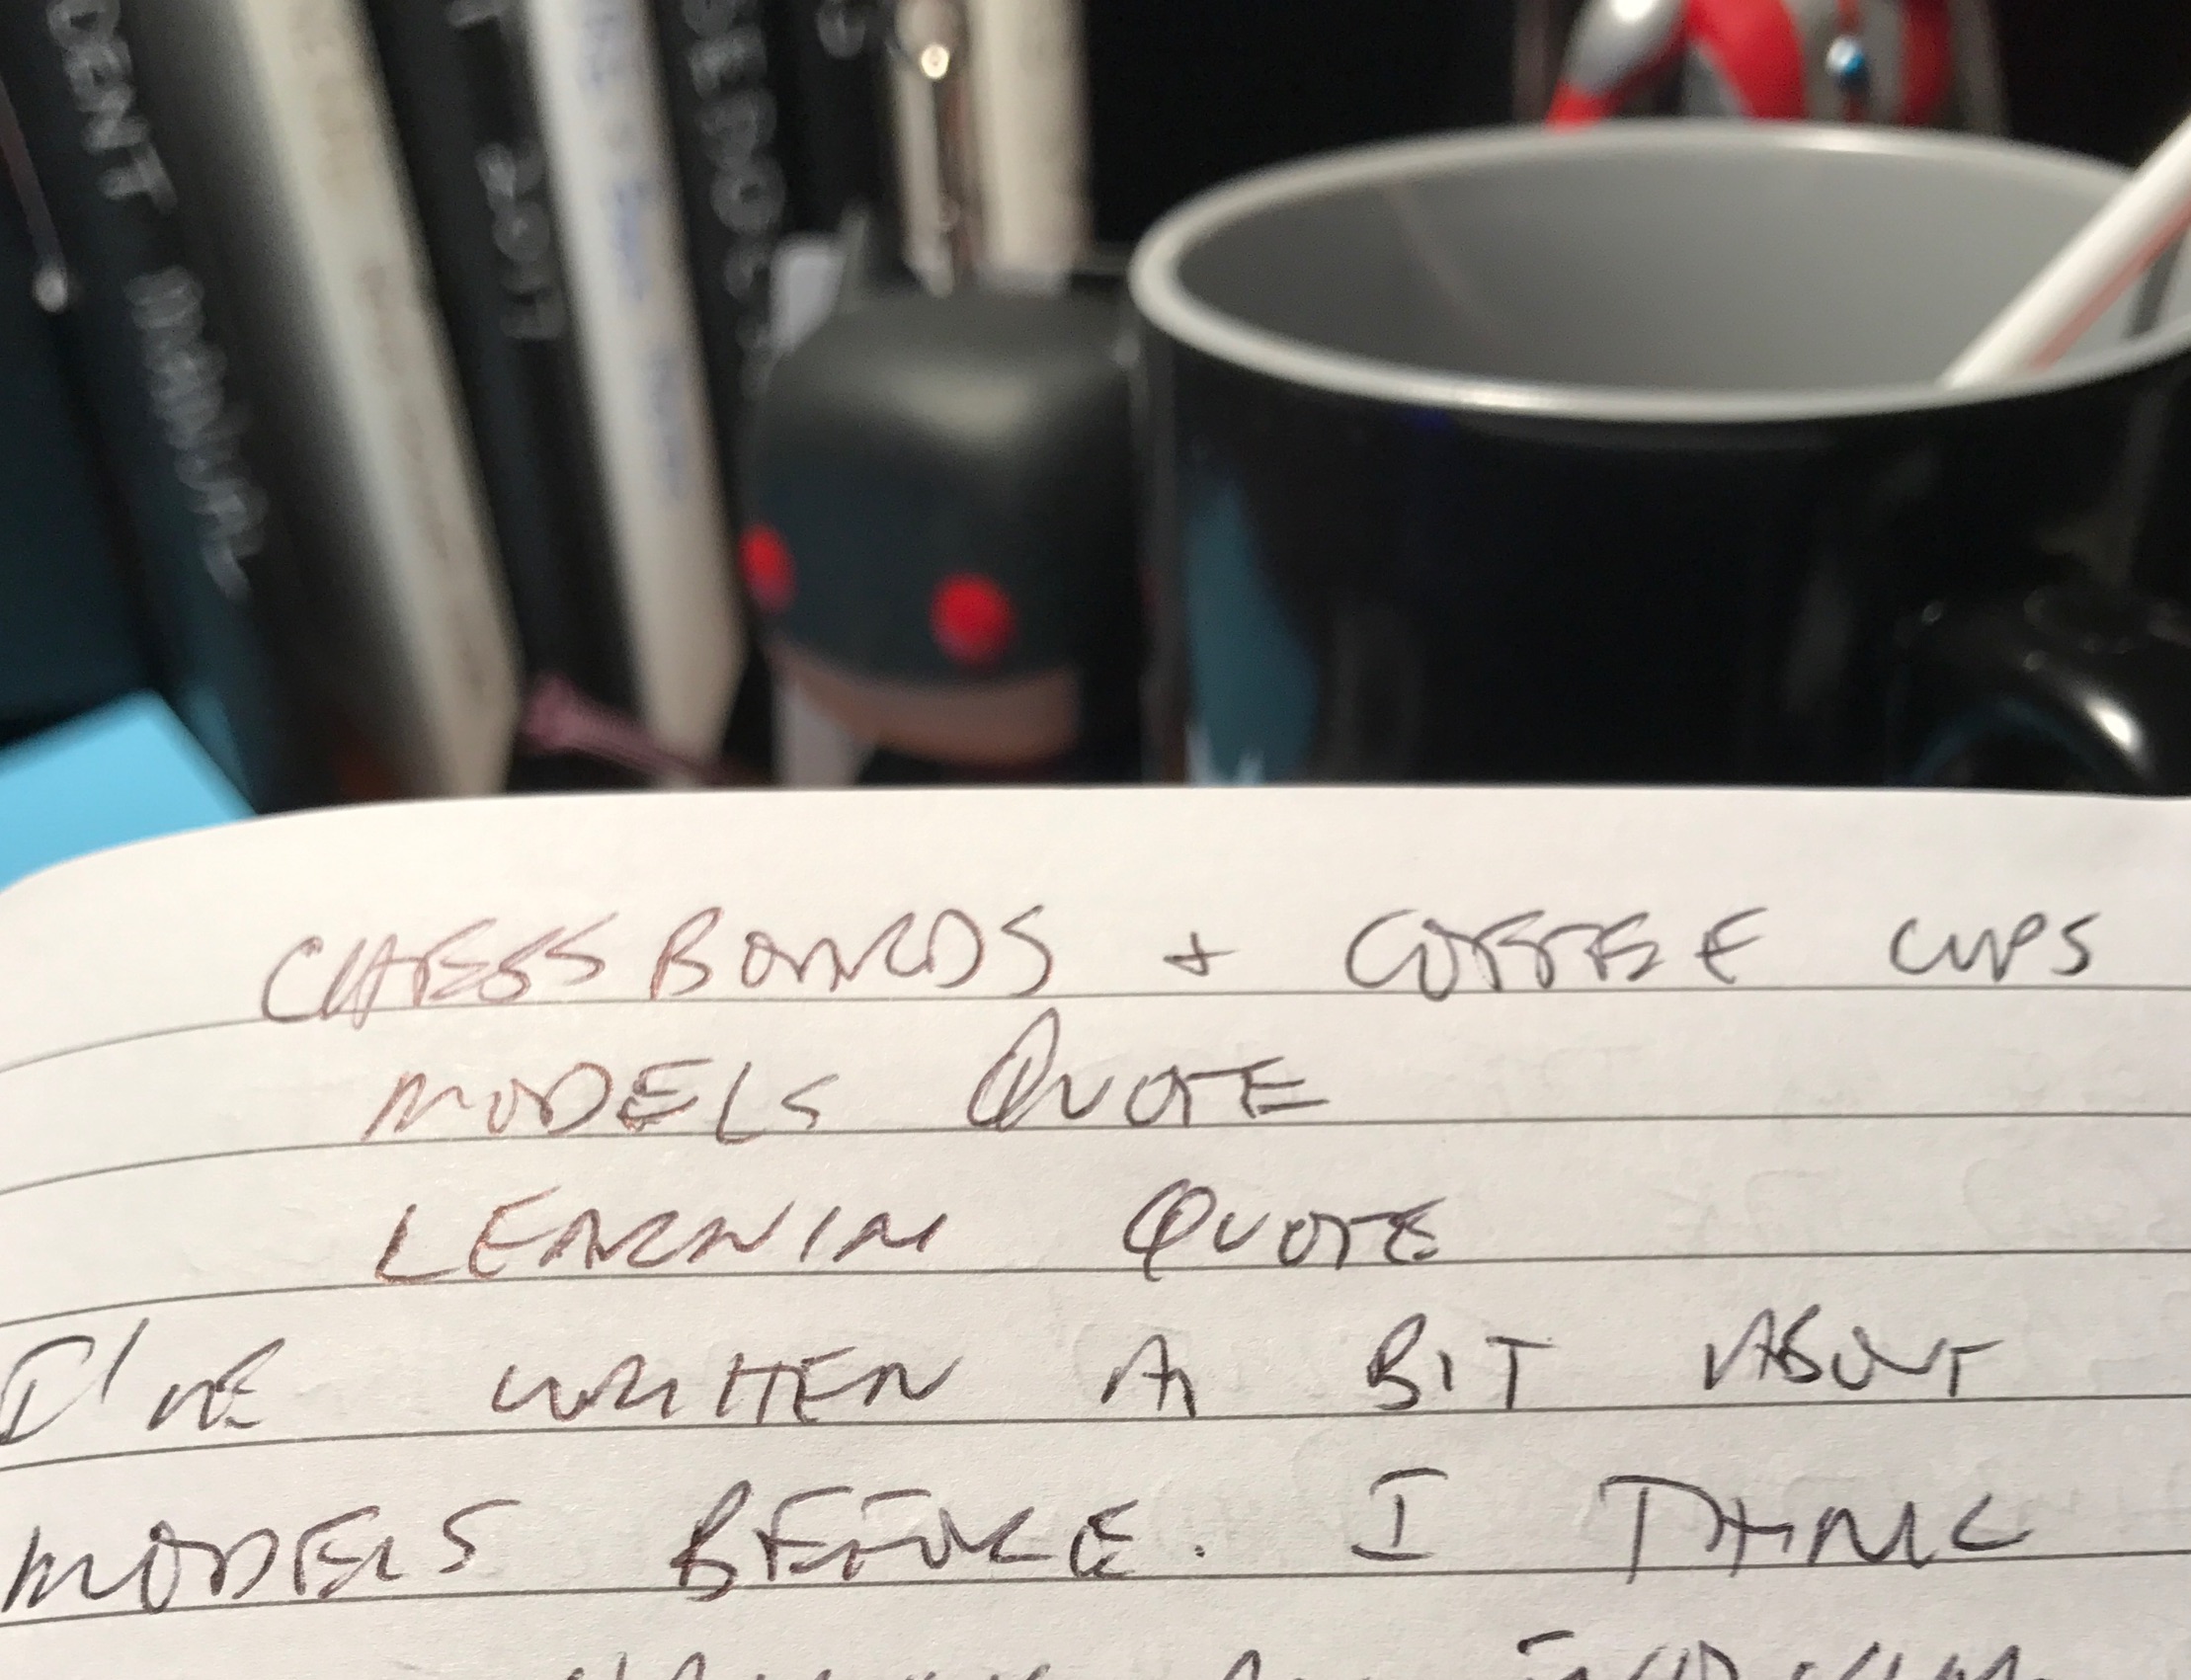 DENT
CHESSBOARDS + COFFEE CUPS
MODELS QUOTE
LEARNIN QUOTE
I'VE WRITTEN A BIT ABOUT
MODELS BEFORE. I THINK